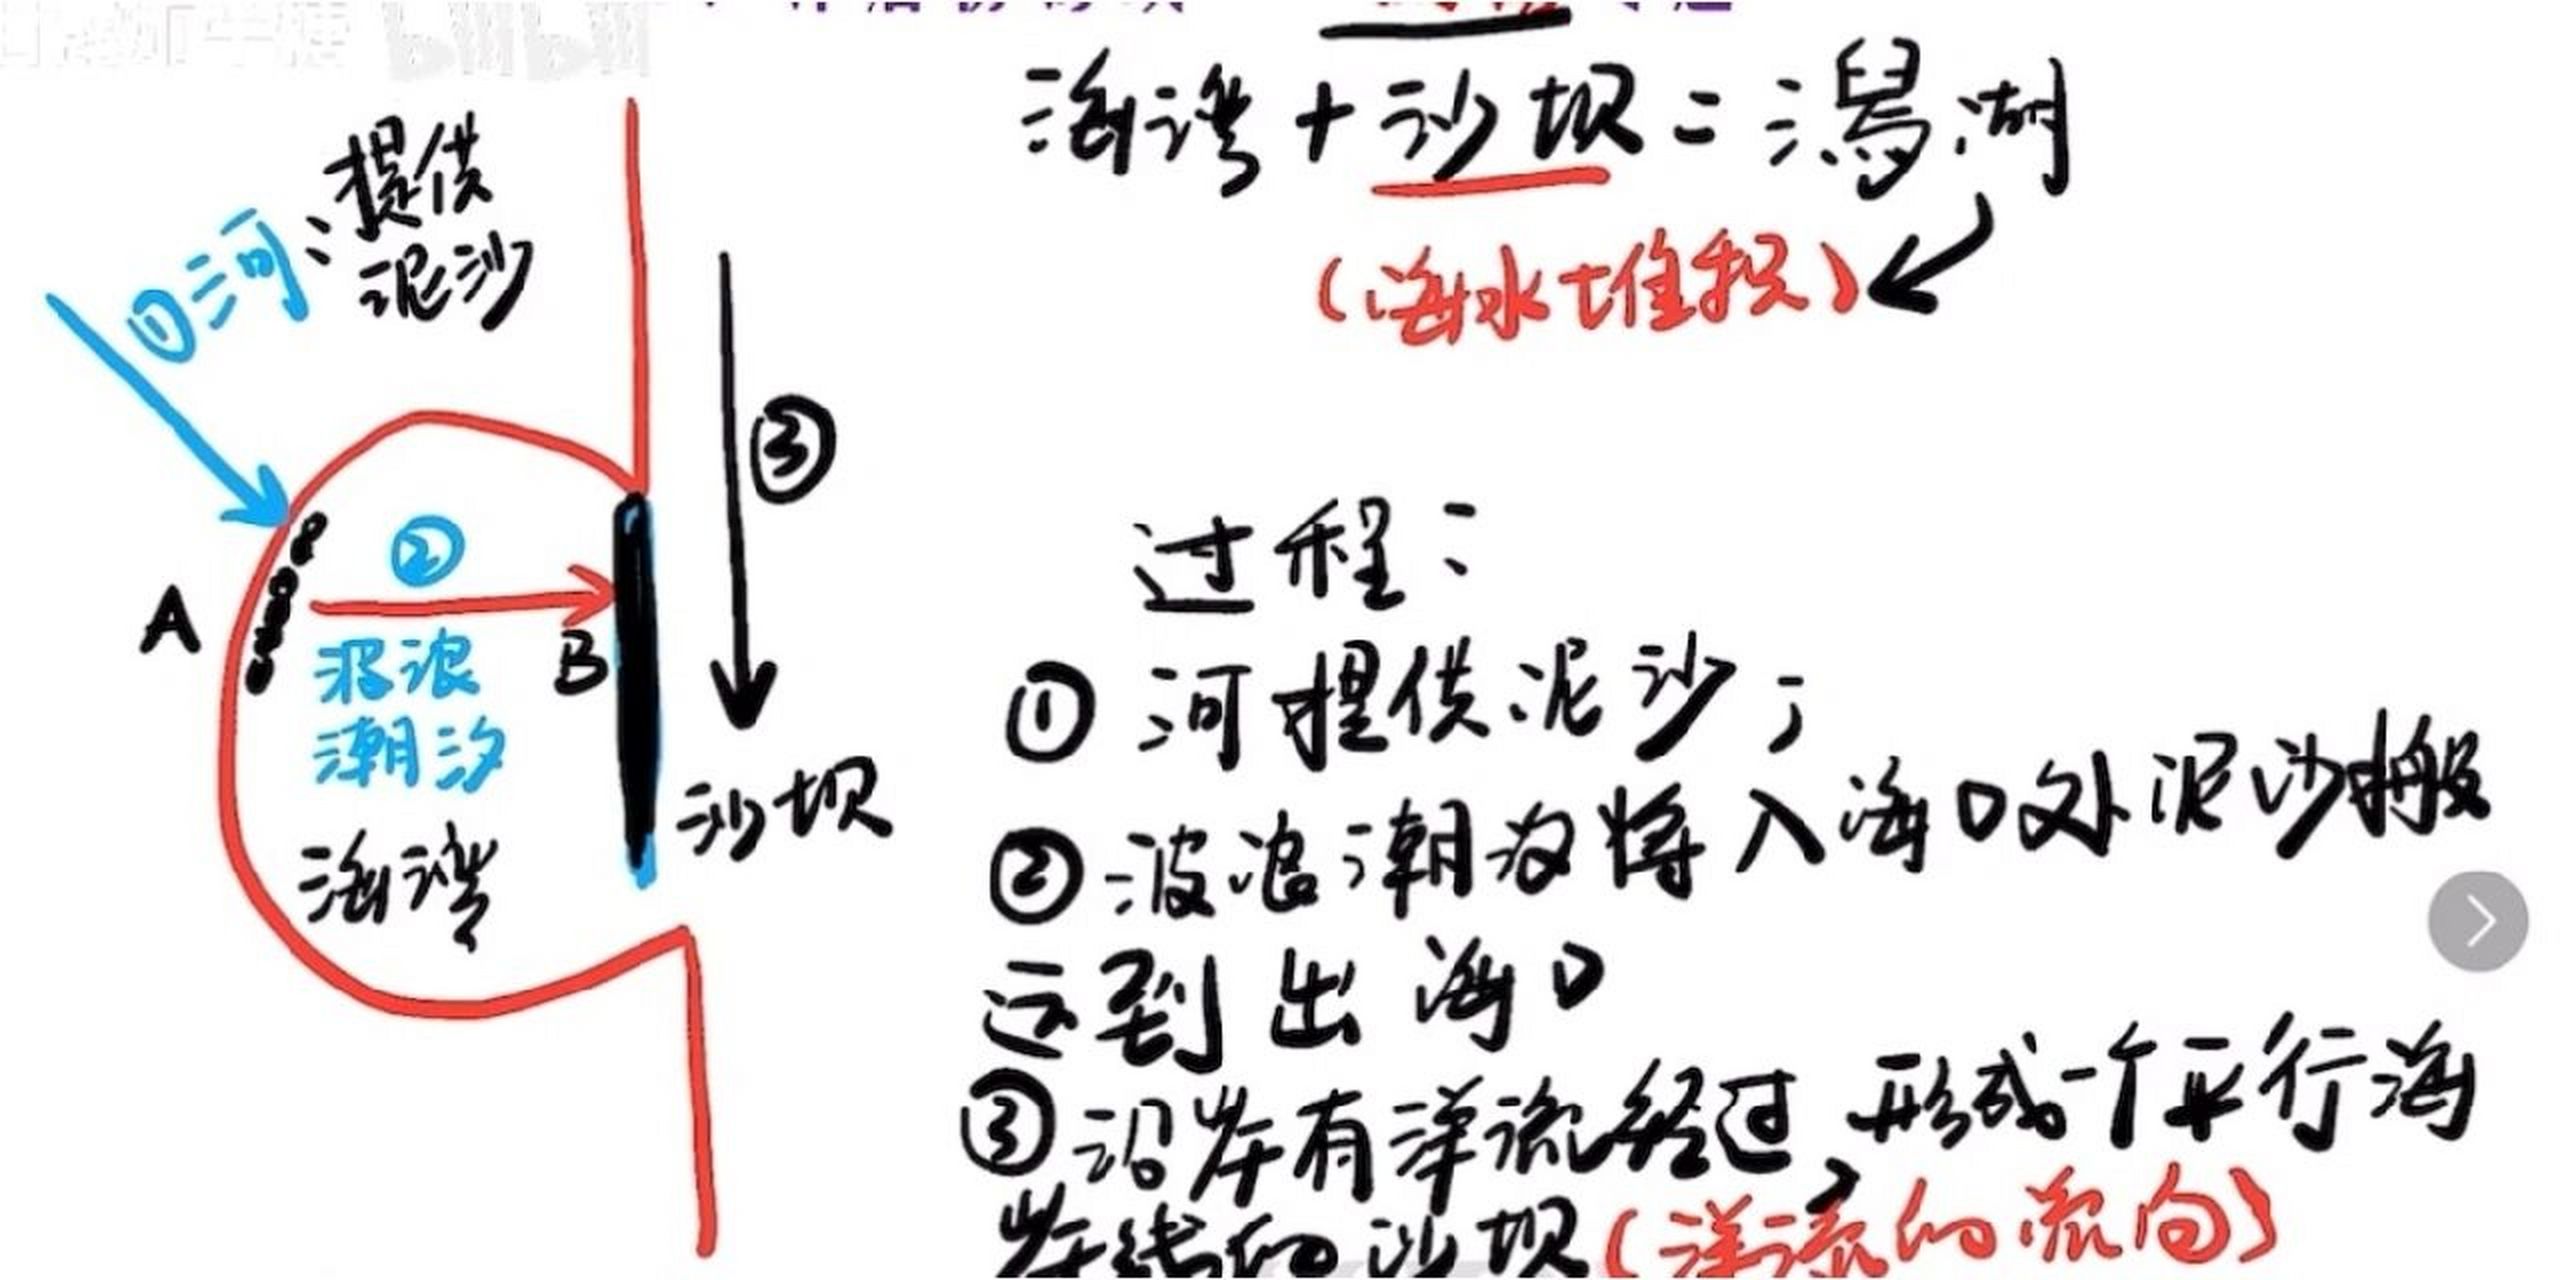 海湾+沙坝=潟湖
(海水堆积)
提供
①河:
泥沙
③
②
A
波浪
B
潮汐
沙坝
海湾
过程:
①河提供泥沙;
②波浪潮汐将入海口处泥沙搬
运到出海口
③沿岸有洋流经过,形成一个平行海
岸线的沙坝(洋流的流向)